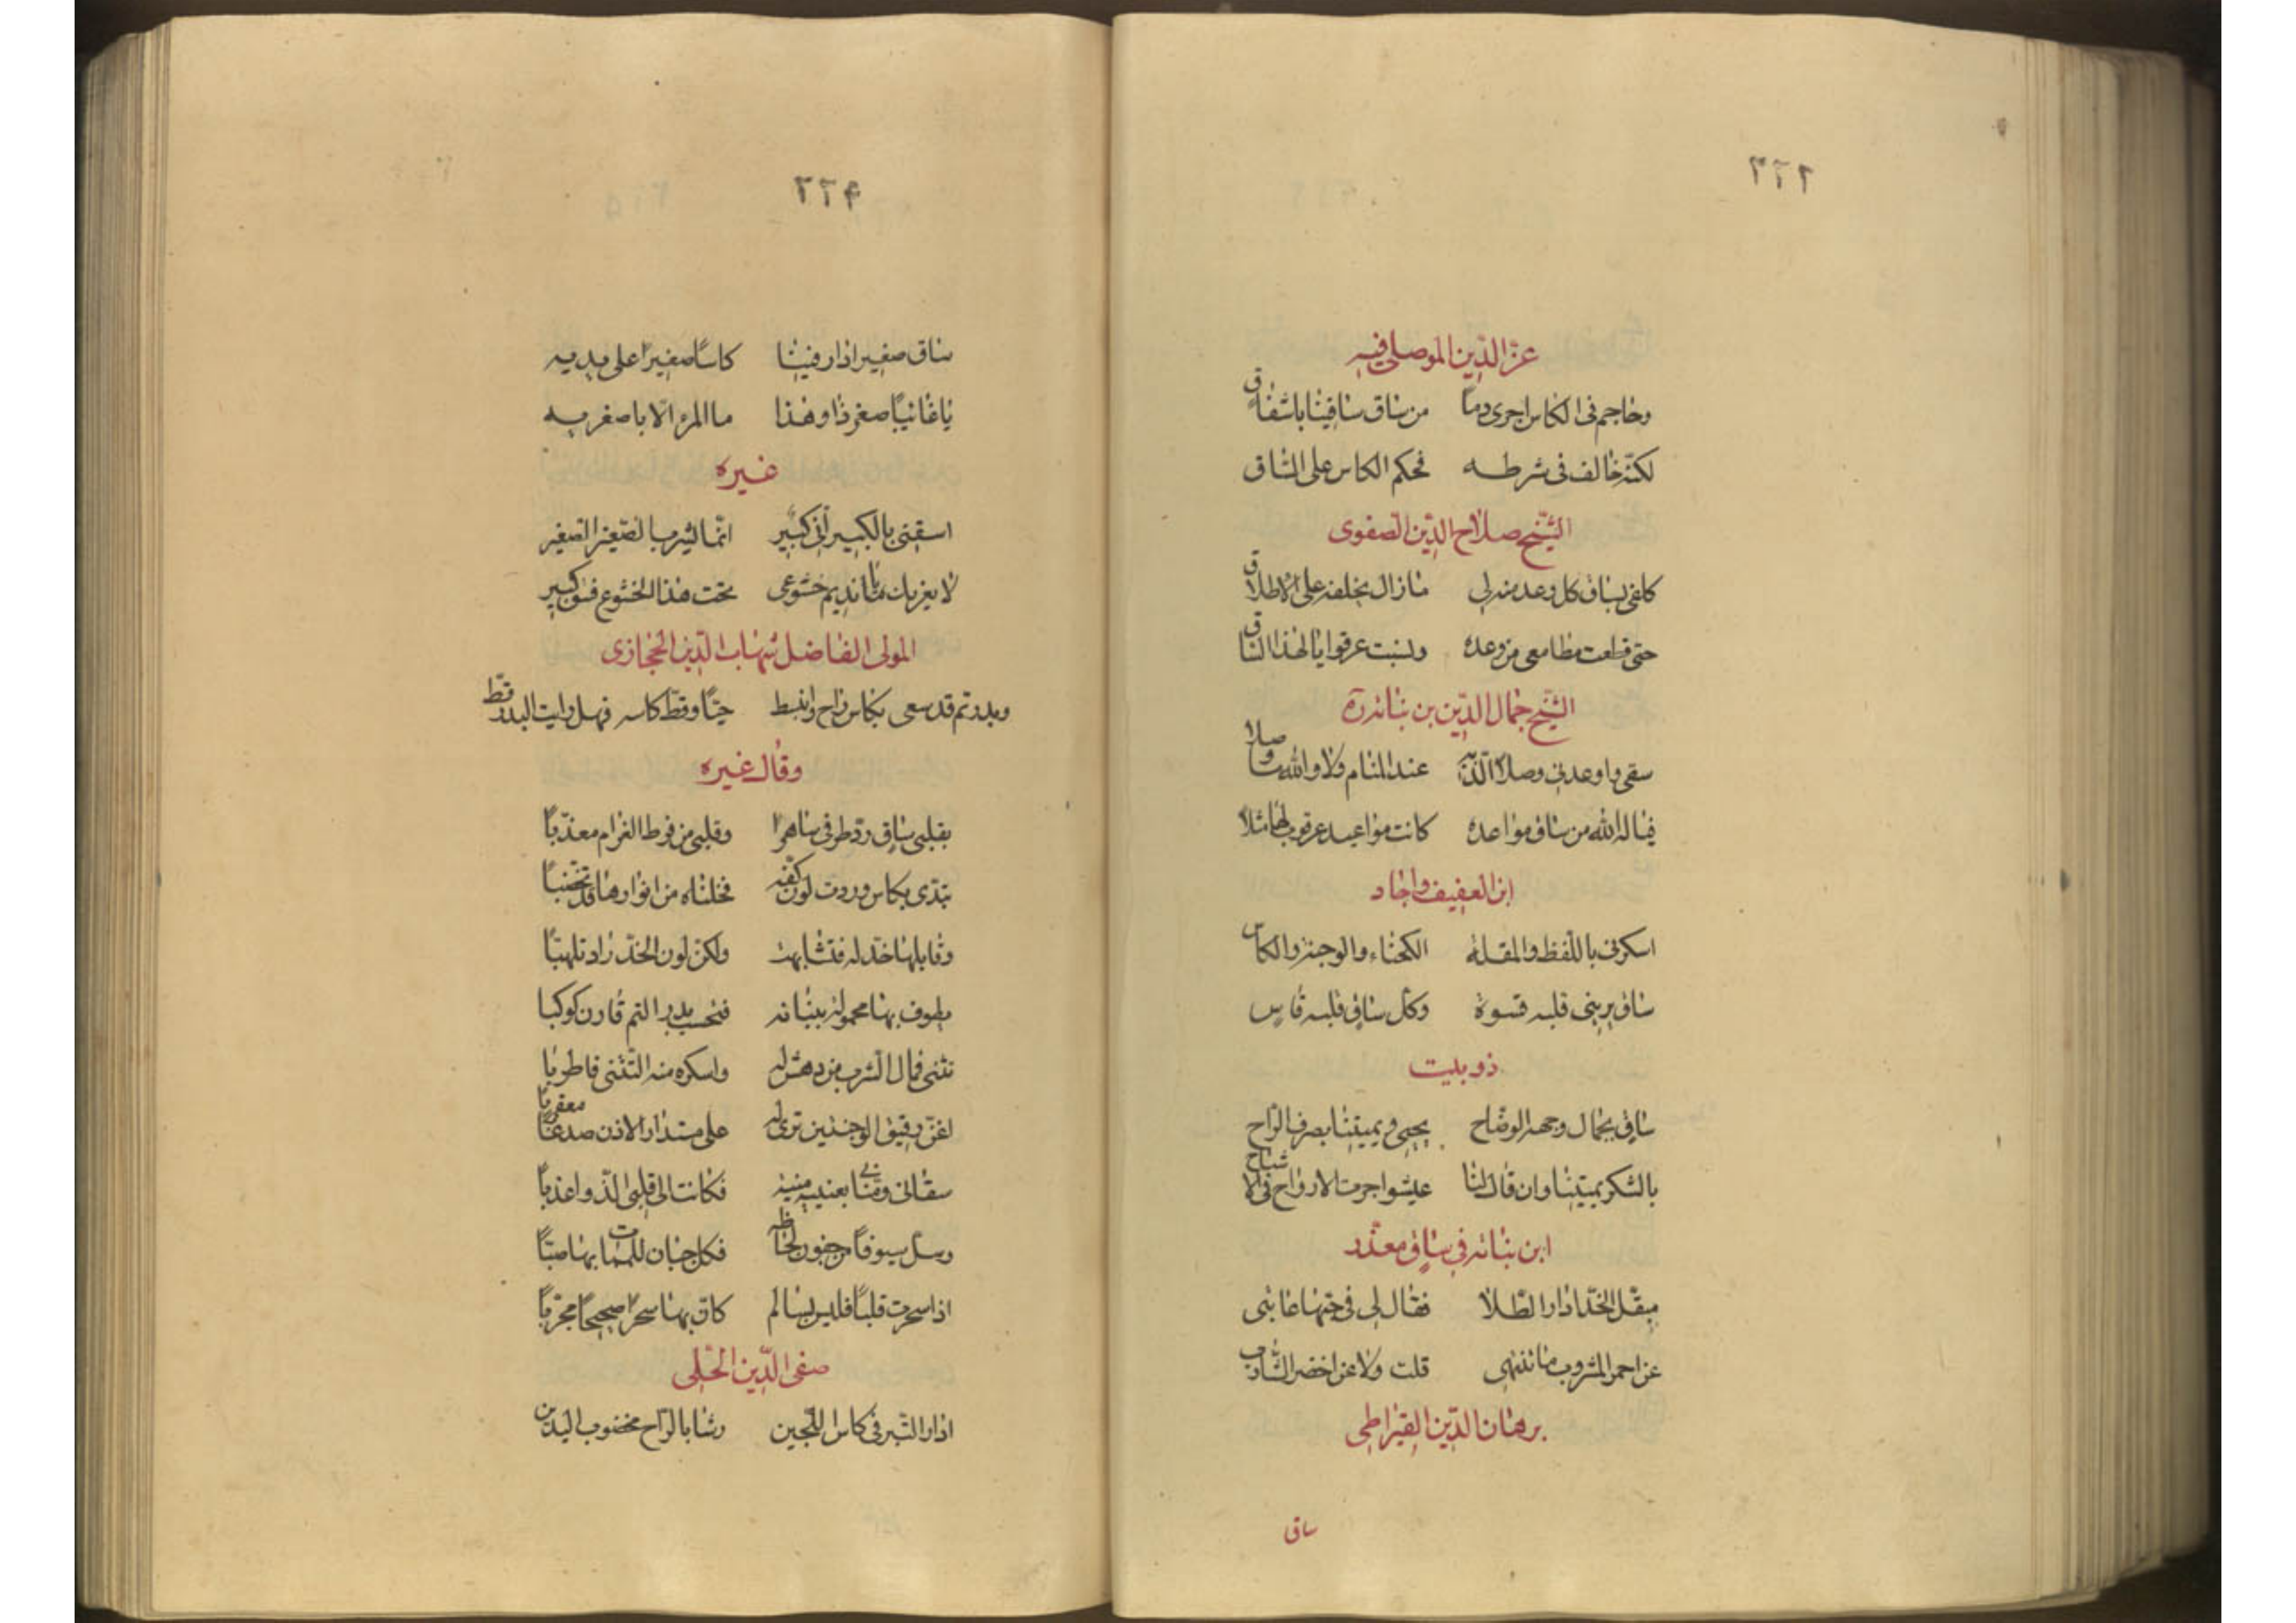 ٢٢٦
عزّ الدّين الموصلي فيه
وحاجم في الكاس اجرى دماً من ساق ساقينا باشفاق
لكنّه خالف في شرطه فحكم الكاس على السّاق
الشّيخ صلاح الدّين الصفوى
كلفي بساق كل وعد منه لي مازال يخلفه على الاطلاق
حتى قطعت مطامعى من وعده ونسبت عرقوابا لهذا السّاق
الشّيخ جمال الدّين بن نباته رة
سقى واوعدنى وصلاً الذّ به عند المنام ولا والله ما وصلا
فيا له الله من ساق مواعده كانت مواعيد عرقوب لها مثلاً
ابن العفيف واجاد
اسكرنى باللّفظ والمقلة الكحلاء والوجنة والكاس
ساق يرينى قلبه قسوة وكلّ ساق قلبه قاسٍ
ذو بليت
ساق بجمال وجهه الوضّاح يحيى ويميتنا بصرف الرّاح
بالسّكر يميتنا وان قال لنا عيشوا جرت الارواح فى الاشباح
ابن نباته في ساق معذّر
مبقّل الخدّ ادار الطّلا فقال لى في حبّها عاتبى
عن احمر المشروب ما تنتهى قلت ولا عن اخضر الشّارب
برهان الدّين القيراطى
ساق
٢٢٩
ساق صغير ادار فينا كاساً صغيراً على يديه
يا غانيباً صغر ذا وهذا ما المرء الّا باصغريه
غيره
اسقنى بالكبير انّى كبير انّما يشرب الصّغير الصّغير
لا يغرنك يا نديم خشوعى تحت هذا الخشوع فسق كبير
المولى الفاضل شهاب الدّين الحجازى
وبدر تم قد سعى بكاس راح وانبسط حيّاً وقطّ كاسه فهل رايت البدر قطّ
وقال غيره
بقلبى ساق ردّ طرفى ساهراً وقلبى من فرط الغرام معذّباً
تبدّى بكاس وردت لون كفّه فخلناه من انوارها قد تخضّباً
وقابلها خدّ له فتشابهت ولكن لون الخدّ زاد تلهبّاً
يطوف بها محمولة ببنانه فتحسب بدر التم قارن كوكبا
تثنى فمال الشرب من دهش له واسكره منه التّثنى فاطربا
اغنّ رقيق الوجنتين ترى له على مستدار الاذن صدغاً معقرباً
سقانى ومنّانى بعينيه منية فكانت الى قلبى الذّ واعذباً
وسلّ سيوفاً من جفون لحاظه فكل جبان للممات بها صبّاً
اذا سحرت قلباً فليس بسالم كانّ بها سحراً صحيحاً مجرّباً
صفى الدّين الحلّى
ادار التّبر فى كاس اللّجين رشا بالرّاح مخضوب اليدين